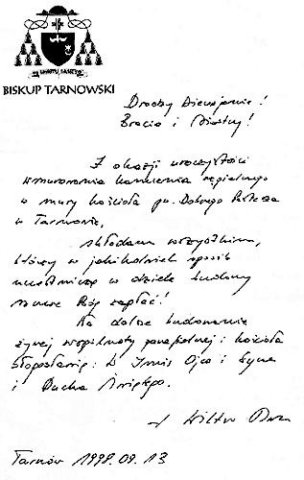 BISKUP TARNOWSKI
Drodzy Diecezjanie!
Bracia i Siostry!
Z okazji uroczystości
wmurowania kamienia węgielnego
w mury kościoła pw. Dobrego Pasterza
w Tarnowie,
składam wszystkim,
którzy w jakikolwiek sposób
uczestniczą w dziele budowy
serdeczne Bóg zapłać!
Na dalsze budowanie
żywej wspólnoty parafialnej i kościoła
błogosławię: W Imię Ojca i Syna
i Ducha Świętego.
+ Wiktor
Tarnów 1998.09.13